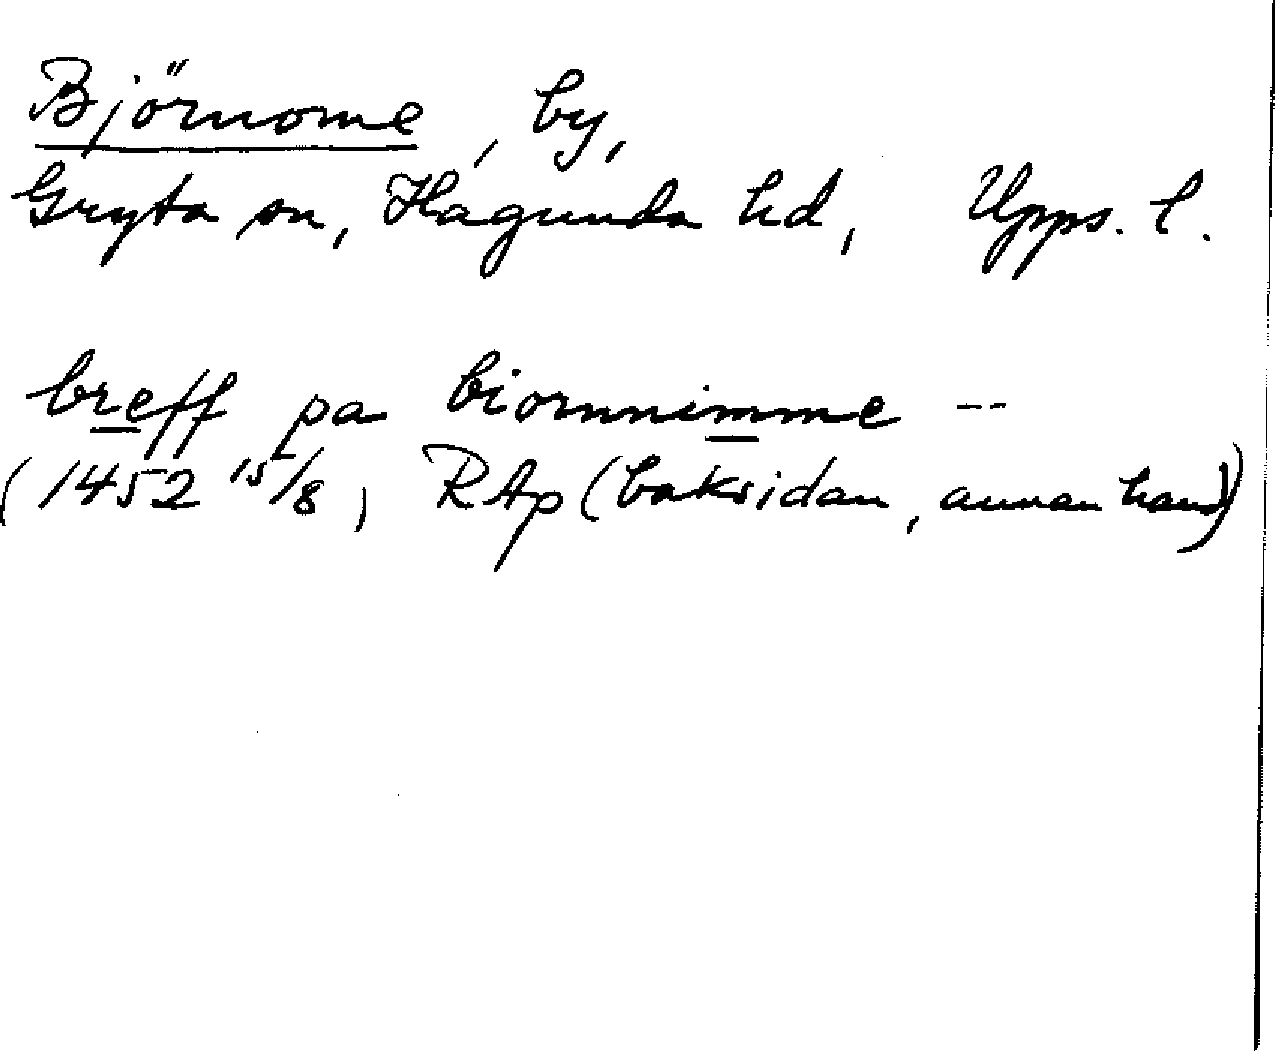 Björnome, by,
Gryta sn, Hagunda hd, Upps. l.
breff pa biornnimme --
(1452 15/8, RAp (baksidan, annan hand))